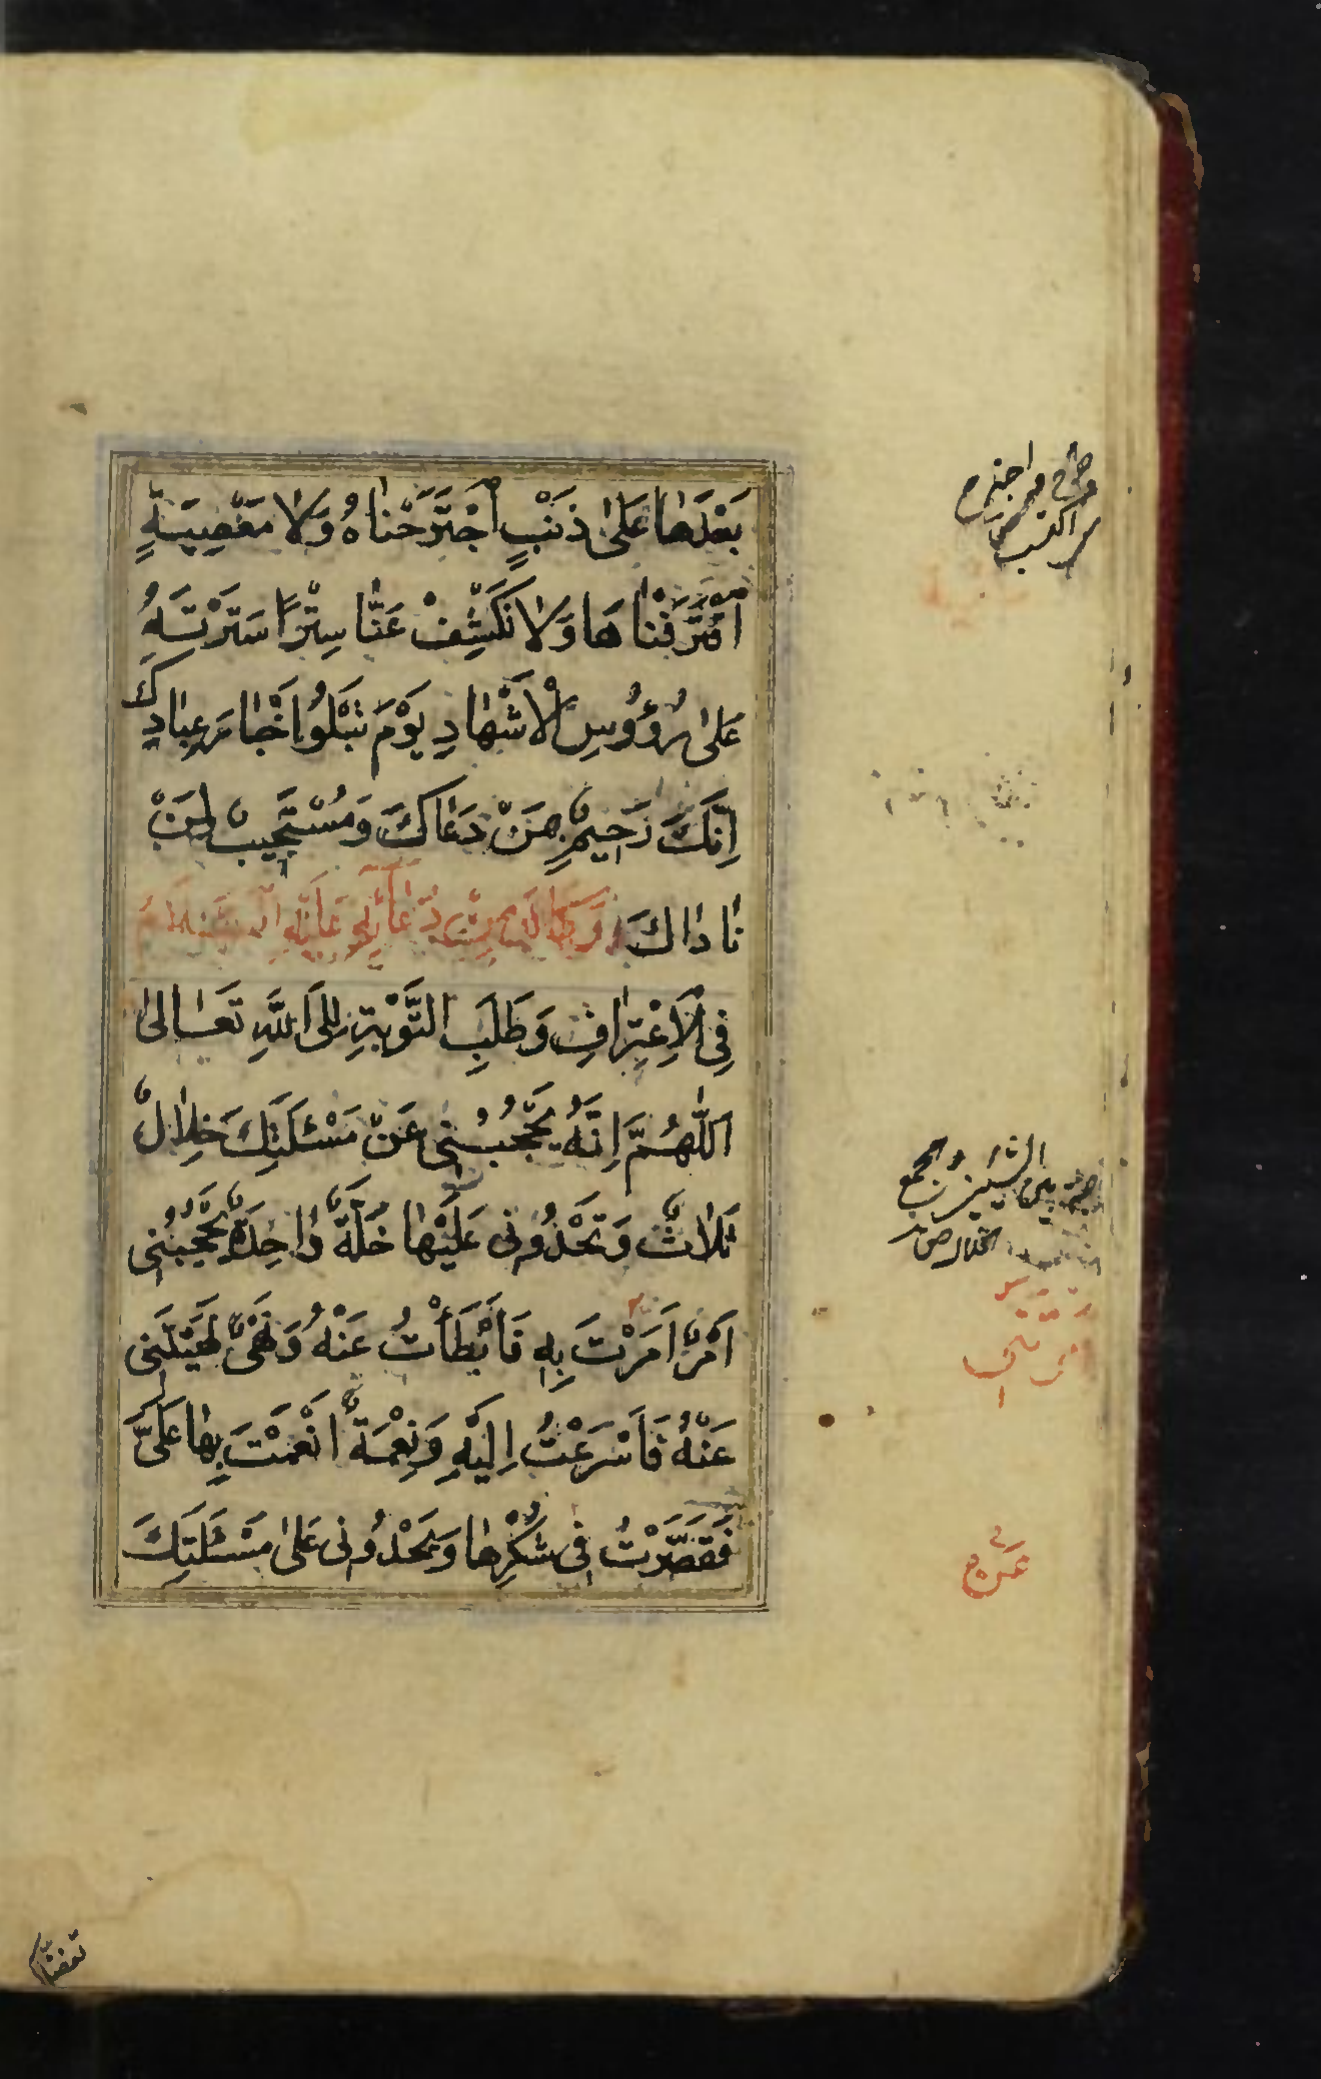 بَعْدَهٰا عَلىٰ ذَنْبٍ اجْتَرَحْنٰاهُ وَلٰا مَعْصِيَةٍ
اقْتَرَفْنٰاهَا وَلٰا تَكْشِفْ عَنّٰا سِتْرًا سَتَرْتَهُ
عَلىٰ رُؤُوسِ الْاَشْهٰادِ يَوْمَ تَبْلُوا اَخْبٰارَ عِبٰادِكَ
اِنَّكَ رَحِيمٌ بِمَنْ دَعٰاكَ وَمُسْتَجِيبٌ لِمَنْ
نٰادٰاكَ وَكٰانَ مِنْ دُعٰائِهِ عَلَيْهِ السَّلٰامُ
فِى الْاِعْتِرٰافِ وَطَلَبِ التَّوْبَةِ اِلَى اللّٰهِ تَعٰالىٰ
اَللّٰهُمَّ اِنَّهُ يَحْجُبُنِى عَنْ مَسْئَلَتِكَ خِلٰالٌ
ثَلٰاثٌ وَتَحْدُونِى عَلَيْهٰا خَلَّةٌ وٰاحِدَةٌ يَحْجُبُنِى
اَمْرٌ اَمَرْتَ بِهِ فَاَبْطَأْتُ عَنْهُ وَنَهْىٌ نَهَيْتَنِى
عَنْهُ فَاَسْرَعْتُ اِلَيْهِ وَنِعْمَةٌ اَنْعَمْتَ بِهٰا عَلَىَّ
فَقَصَّرْتُ فِى شُكْرِهٰا وَيَحْدُونِى عَلىٰ مَسْئَلَتِكَ